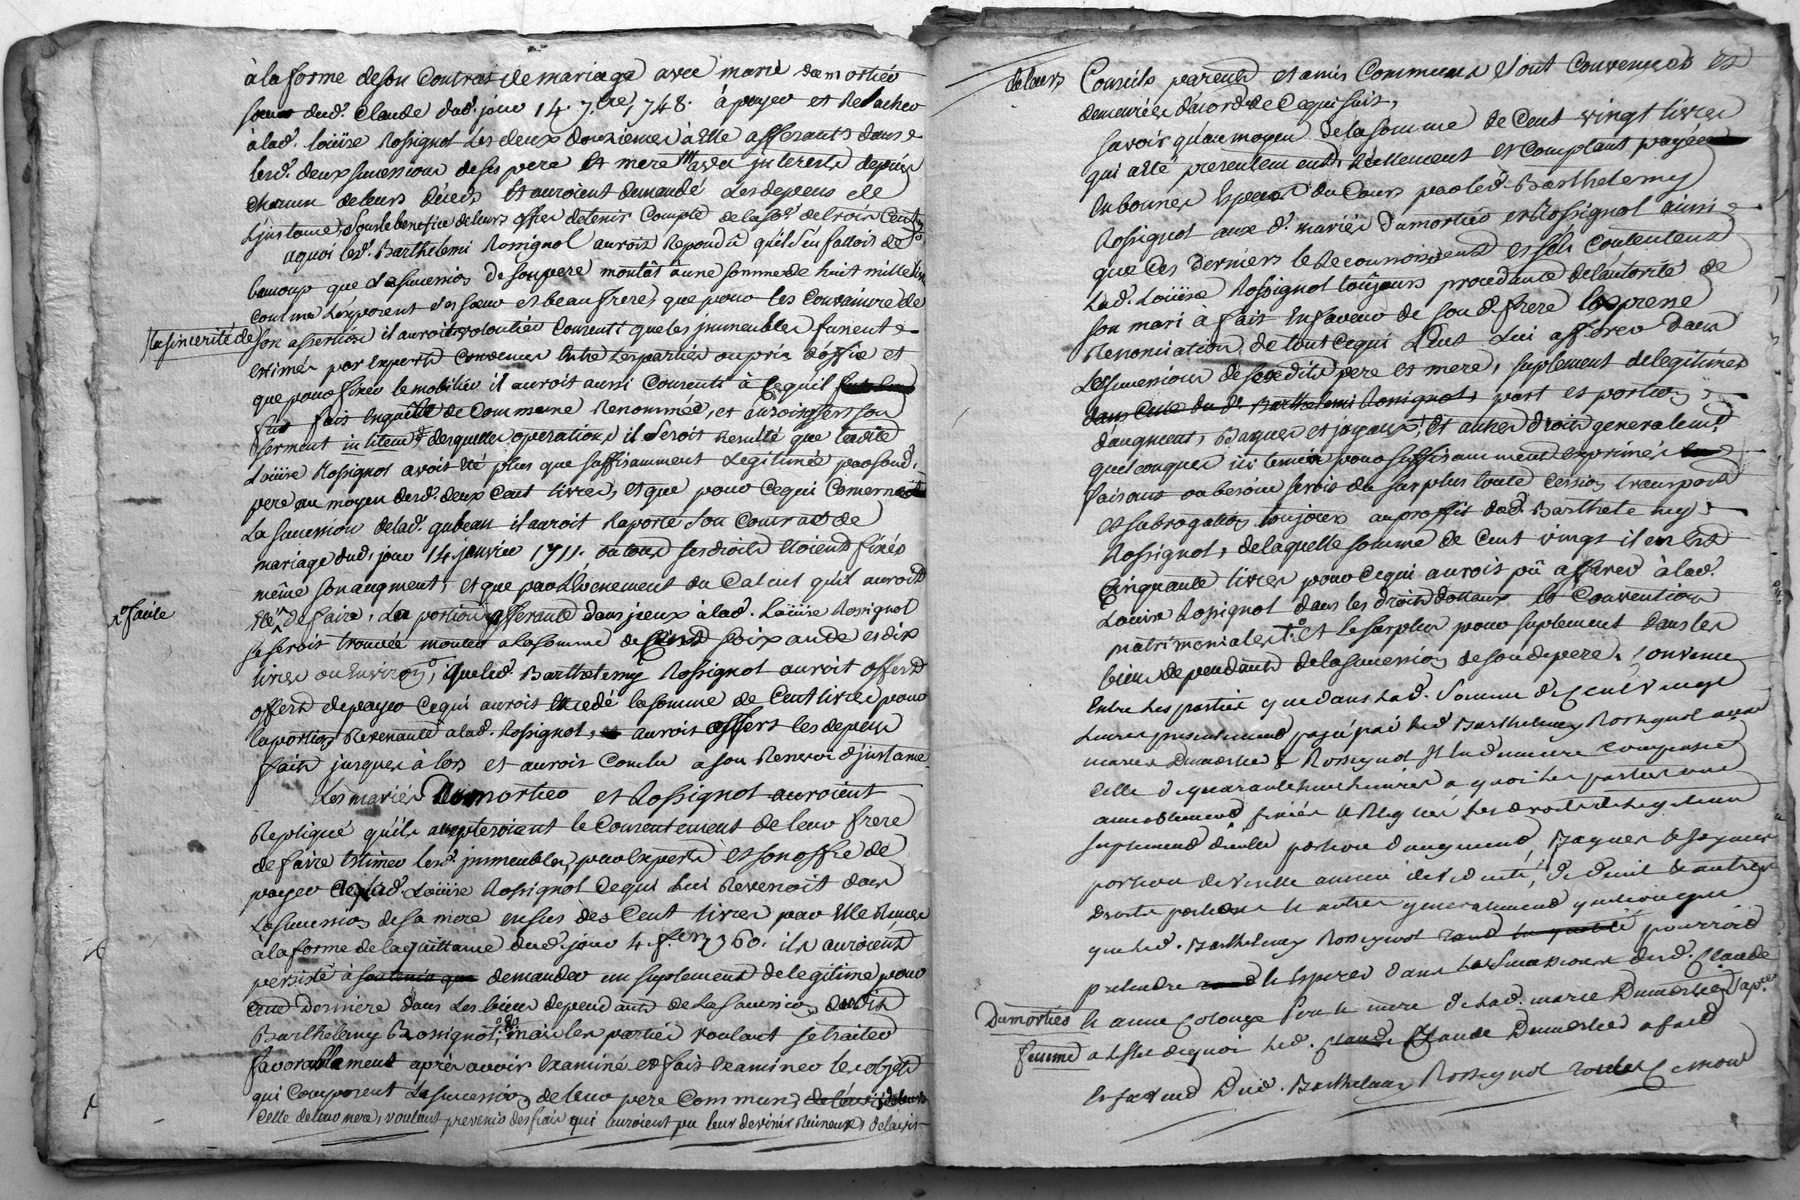 à la forme de son Contrat de mariage avec marie dumortiéo
soeur dud. Claude dud. jour 14. 7.bre 1748. à payer et Relacher
à lad. Loüise Rossignol Les deux douziemes à Elle afferants dans
lesd. deux sucessions de ses pere et mere avec interests depuis
chacun de leurs décéds Et auroient demandé Les depens de
L'justance, Sous le benefice de leurs offres de tenir Compte de la de trois Cent
aquoi led. Barthelemi Rossignol auroit Repondu qu'il s'en falloit de
beaucoup que La sucession De son pere montât à une somme de huit mille
comme L'exposent Ses soeur et beaufrere, que pour les Convaincre de
la sincerité de
son assertion il auroit volontiés Consenti que les jmmeubles fussent
estimés par Experts Convenus Entre Les parties ou pris d'office et
que pour fixer le mobilier il auroit aussi Consenti à Ce qu'il
fut fait Enquête de Commune Renommée, et auroit offert son
serment in litem desquelles operations il seroit Resulté que ladite
Loüise Rossignol avoit été plus que suffisamment Legitimée par sond.
pere au moyen desd. deux Cent livres, et que pour Ce qui Concerne
La sucession de lad. gubeau il auroit Raporté son Contrat de
mariage dud. jour 14. janvier 1711. où tous ses droits Etoient fixés
même son augment, et que par L'Evenement du Calcul qu'il auroit
faute
Eté De faire, La portion afferante dans jceux à lad. Loüise Rossignol
se seroit trouvée monter a la somme de soixante et dix
livres ou Environ, que led. Barthelemy Rossignol auroit offert
offert de payer Ce qui auroit Excedé la somme de Cent livres pour
la portion Revenante a lad. Rossignol, auroit offert les depens
faits jusques à lors et auroit Conclu a son Renvoi d'justance
Les mariés Dumortieo et Rossignol auroient
Repliqué qu'ils accepteroient le Consentement de leur frere
de faire Estimer lesd. jmmeubles par Experts Et son offre de
payer à lad. Loüise Rossignol Ce qui Lui Revenoit dans
La sucession de sa mere en sus des Cent livres par Elle Reçues
à la forme de la quittance dud. jour 4. 1760. ils auroient
persisté à demander un suplement de legitime pour
Cette Derniere dans Les biens dependants de La sucession dudit
Barthelemy Rossignol, mais les parties voulant se traiter
favorablement après avoir Examiné et fait Examiner les objets
qui Composent La sucession de leur pere Commun,
Celle de leur mere, voulant prevenir des frais qui auroient pu leur devenir Ruineux, de l'avis
de leurs Conseils parents et amis Communs Sont Convenues et
demeurées d'acord de Ce qui suit,
Savoir qu'au moyen De la somme de Cent vingt livres
qui a été presentement Réellement et Comptant payée
En bonnes Especes du Cours par led. Barthelemy
Rossignol aux d. mariés Dumortieo et Rossignol ainsi
que Ces Derniers le Reconnoissent et s'en Contentent
Lad. Loüise Rossignol toûjours procedante de l'autorité de
son mari a fait En faveur de son d. frere Expresse
Renonciation de tout Ce qui Peut Lui afferer dans
Les sucessions de sesdits pere et mere, suplement de legitimes
dans Celle dud. Barthelemi Rossignol, part et portion
d'augment, Bagues et joyaux, Et autres droits generalement
quelconques ici tenus pour suffisamment exprimés
faisant au besoin servir du surplus toute Cession transport
et subrogation toujours au proffit dud. Barthelemy
Rossignol, de laquelle somme de Cent vingt il en Est
Cinquante livres pour Ce qui auroit pû afferer à lad.
Loüise Rossignol dans les droits dotaux Convention
matrimoniales, Et le surplus pour suplement dans les
biens dependants de la sucession de son d. pere. Convenu
Entre Les parties que dans Lad. Somme de Cent vingt
Livres presentement payé par led. Barthelemy Rossignol auxd.
mariés Dumortieo & Rossignol Est Comprise
Celle de quarante a quoi Les parties ont
fixés & Reglées Les droits de
suplement d'icelle portion d'augment, Bagues & joyaux
portion de année de viduité, & Deuil & autres
Droits & autres generalement quelconques
que led. Barthelemy Rossignol pourroit
pretendre & Esperer dans Les sucessions dud. Claude
Dumortieo & anne Colonge Pere & mere de Lad. marie Dumortieo sa
femme a L'Effet de quoi led. Claude Dumortieo a fait
En faveur Dud. Barthelemy Rossignol toutes Cession